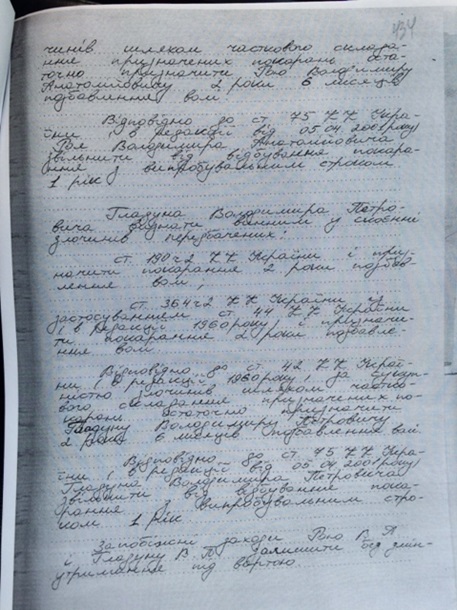 434
чинів шляхом часткового склада-
ння призначених покарань оста-
точно призначити Рою Володимиру
Анатолійовичу 2 роки 6 місяців
позбавлення волі
Відповідно до ст. 75 КК Укра-
їни / в редакції від 05.04.2001 року/
Роя Володимира Анатолійовича
звільнити від відбування покара-
ння з випробувальним строком
1 рік
Гладуна Володимира Петро-
вича визнати винним у скоєнні
злочинів передбачених:
ст. 190 ч 2 КК України і приз-
начити покарання 2 роки позбав-
лення волі,
ст. 364 ч 2 КК України із
застосуванням ст. 44 КК України
/ в редакції 1960 року/ і призначи-
ти покарання 2 роки позбавле-
ння волі
Відповідно до ст. 42 КК Украї-
ни / в редакції 1960 року/, за сукуп-
ністю злочинів шляхом частко-
вого складання призначених по-
карань остаточно призначити
Гладуну Володимиру Петровичу
2 роки 6 місяців позбавлення волі
Відповідно до ст. 75 КК Укра-
їни / в редакції від 05.04.2001 року/
Гладуна Володимира Петровича
звільнити від відбування пока-
рання з випробувальним стро-
ком 1 рік
Запобіжні заходи Рою В А
і Гладуну В. П. залишити без змін-
утримання під вартою